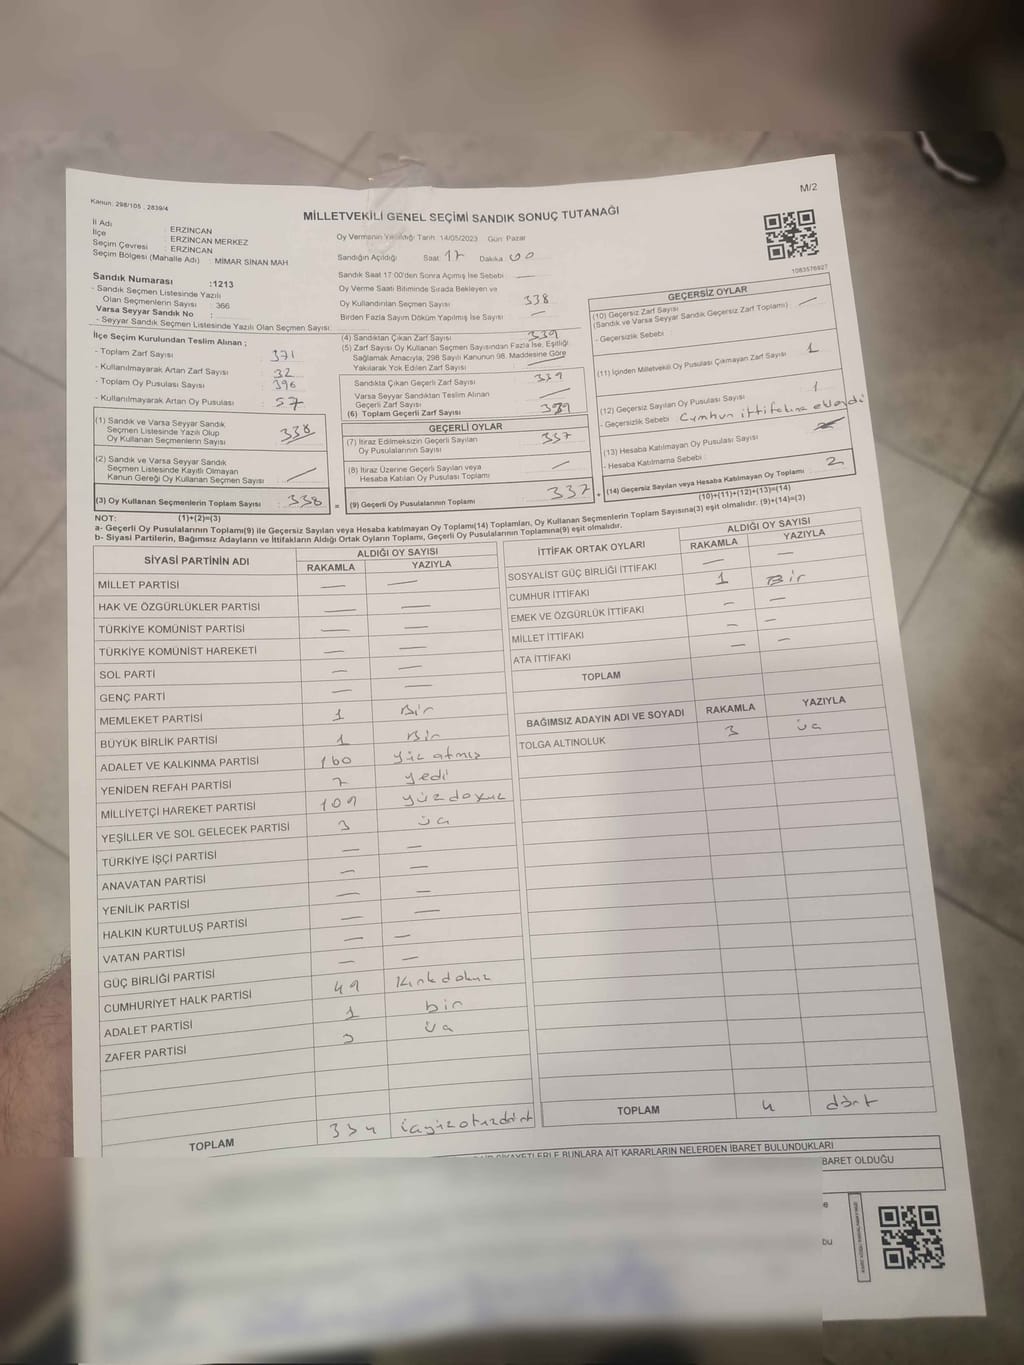 M/2
Kanun: 298/105 , 2839/4
MİLLETVEKİLİ GENEL SEÇİMİ SANDIK SONUÇ TUTANAĞI
İl Adı : ERZİNCAN
İlçe : ERZİNCAN MERKEZ
Seçim Çevresi : ERZİNCAN
Seçim Bölgesi (Mahalle Adı) : MİMAR SİNAN MAH
Sandık Numarası :1213
- Sandık Seçmen Listesinde Yazılı
Olan Seçmenlerin Sayısı : 366
Varsa Seyyar Sandık No :
- Seyyar Sandık Seçmen Listesinde Yazılı Olan Seçmen Sayısı:
Oy Vermenin Yapıldığı Tarih: 14/05/2023 Gün: Pazar
Sandığın Açıldığı Saat: 17 Dakika: 00
Sandık Saat 17:00'den Sonra Açılmış İse Sebebi : —
Oy Verme Saati Bitiminde Sırada Bekleyen ve
Oy Kullandırılan Seçmen Sayısı 338
Birden Fazla Sayım Döküm Yapılmış İse Sayısı —
1083576927
İlçe Seçim Kurulundan Teslim Alınan ;
- Toplam Zarf Sayısı : 371
- Kullanılmayarak Artan Zarf Sayısı : 32
- Toplam Oy Pusulası Sayısı : 396
- Kullanılmayarak Artan Oy Pusulası : 57
(1) Sandık ve Varsa Seyyar Sandık
Seçmen Listesinde Yazılı Olup
Oy Kullanan Seçmenlerin Sayısı : 338
(2) Sandık ve Varsa Seyyar Sandık
Seçmen Listesinde Kayıtlı Olmayan
Kanun Gereği Oy Kullanan Seçmen Sayısı : —
(3) Oy Kullanan Seçmenlerin Toplam Sayısı : 338
(1)+(2)=(3)
(4) Sandıktan Çıkan Zarf Sayısı : 339
(5) Zarf Sayısı Oy Kullanan Seçmen Sayısından Fazla İse, Eşitliği
Sağlamak Amacıyla, 298 Sayılı Kanunun 98. Maddesine Göre
Yakılarak Yok Edilen Zarf Sayısı : —
Sandıkta Çıkan Geçerli Zarf Sayısı : 339
Varsa Seyyar Sandıktan Teslim Alınan
Geçerli Zarf Sayısı : —
(6) Toplam Geçerli Zarf Sayısı : 339
GEÇERLİ OYLAR
(7) İtiraz Edilmeksizin Geçerli Sayılan
Oy Pusulasının Sayısı : 337
(8) İtiraz Üzerine Geçerli Sayılan veya
Hesaba Katılan Oy Pusulası Toplamı : —
= (9) Geçerli Oy Pusulalarının Toplamı : 337 +
GEÇERSİZ OYLAR
(10) Geçersiz Zarf Sayısı
(Sandık ve Varsa Seyyar Sandık Geçersiz Zarf Toplamı) : —
- Geçersizlik Sebebi :
(11) İçinden Milletvekili Oy Pusulası Çıkmayan Zarf Sayısı : 1
(12) Geçersiz Sayılan Oy Pusulası Sayısı : 1
- Geçersizlik Sebebi : Cumhur ittifakına eklendi
(13) Hesaba Katılmayan Oy Pusulası Sayısı
- Hesaba Katılmama Sebebi :
(14) Geçersiz Sayılan veya Hesaba Katılmayan Oy Toplamı : 2
(10)+(11)+(12)+(13)=(14)
NOT:
a- Geçerli Oy Pusulalarının Toplamı(9) ile Geçersiz Sayılan veya Hesaba katılmayan Oy Toplamı(14) Toplamları, Oy Kullanan Seçmenlerin Toplam Sayısına(3) eşit olmalıdır. (9)+(14)=(3)
b- Siyasi Partilerin, Bağımsız Adayların ve İttifakların Aldığı Ortak Oyların Toplamı, Geçerli Oy Pusulalarının Toplamına(9) eşit olmalıdır.
SİYASİ PARTİNİN ADI ALDIĞI OY SAYISI
RAKAMLA YAZIYLA
MİLLET PARTİSİ — —
HAK VE ÖZGÜRLÜKLER PARTİSİ — —
TÜRKİYE KOMÜNİST PARTİSİ — —
TÜRKİYE KOMÜNİST HAREKETİ — —
SOL PARTİ — —
GENÇ PARTİ — —
MEMLEKET PARTİSİ 1 Bir
BÜYÜK BİRLİK PARTİSİ 1 Bir
ADALET VE KALKINMA PARTİSİ 160 yüz atmış
YENİDEN REFAH PARTİSİ 7 yedi
MİLLİYETÇİ HAREKET PARTİSİ 109 yüzdokuz
YEŞİLLER VE SOL GELECEK PARTİSİ 3 üç
TÜRKİYE İŞÇİ PARTİSİ — —
ANAVATAN PARTİSİ — —
YENİLİK PARTİSİ — —
HALKIN KURTULUŞ PARTİSİ — —
VATAN PARTİSİ — —
GÜÇ BİRLİĞİ PARTİSİ — —
CUMHURİYET HALK PARTİSİ 49 Kırkdokuz
ADALET PARTİSİ 1 bir
ZAFER PARTİSİ 3 üç
TOPLAM 334 üçyüzotuzdört
İTTİFAK ORTAK OYLARI ALDIĞI OY SAYISI
RAKAMLA YAZIYLA
SOSYALİST GÜÇ BİRLİĞİ İTTİFAKI — —
CUMHUR İTTİFAKI 1 Bir
EMEK VE ÖZGÜRLÜK İTTİFAKI — —
MİLLET İTTİFAKI — —
ATA İTTİFAKI — —
TOPLAM
BAĞIMSIZ ADAYIN ADI VE SOYADI RAKAMLA YAZIYLA
TOLGA ALTINOLUK 3 üç
TOPLAM 4 dört
BUNLARA AİT KARARLARIN NELERDEN İBARET BULUNDUKLARI
BARET OLDUĞU
e
bu